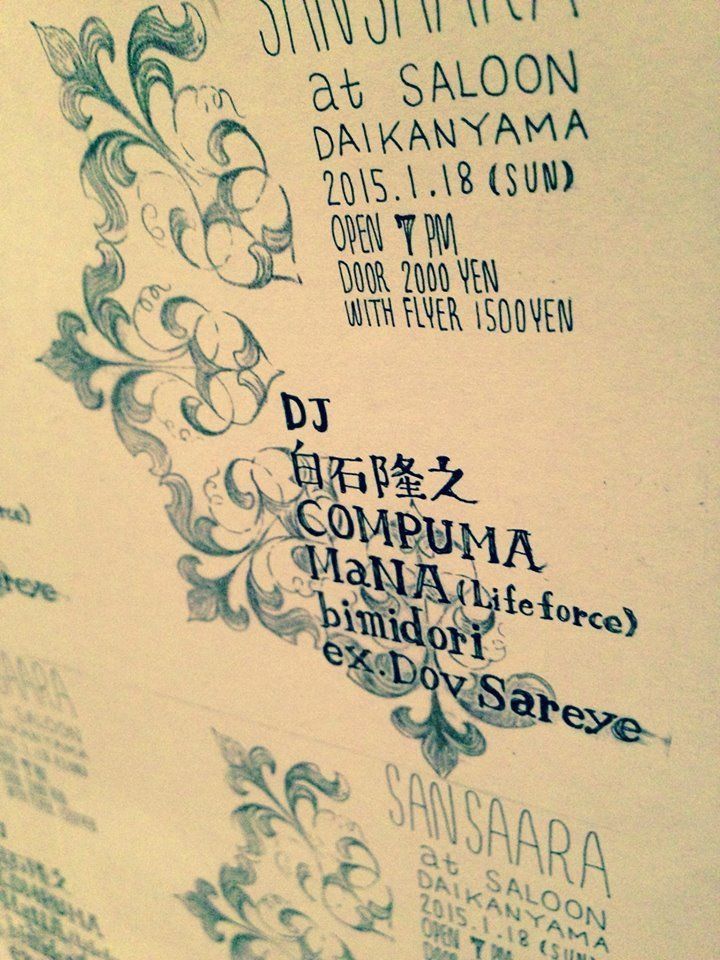 SANSAARA
at SALOON
DAIKANYAMA
2015.1.18 (SUN)
OPEN 7 PM
DOOR 2000 YEN
WITH FLYER 1500YEN
DJ
白石隆之
COMPUMA
MaNA (Lifeforce)
bimidori
ex. Dov Sareye
SANSAARA
at SALOON
DAIKANYAMA
2015.1.18 (SUN)
OPEN 7 PM